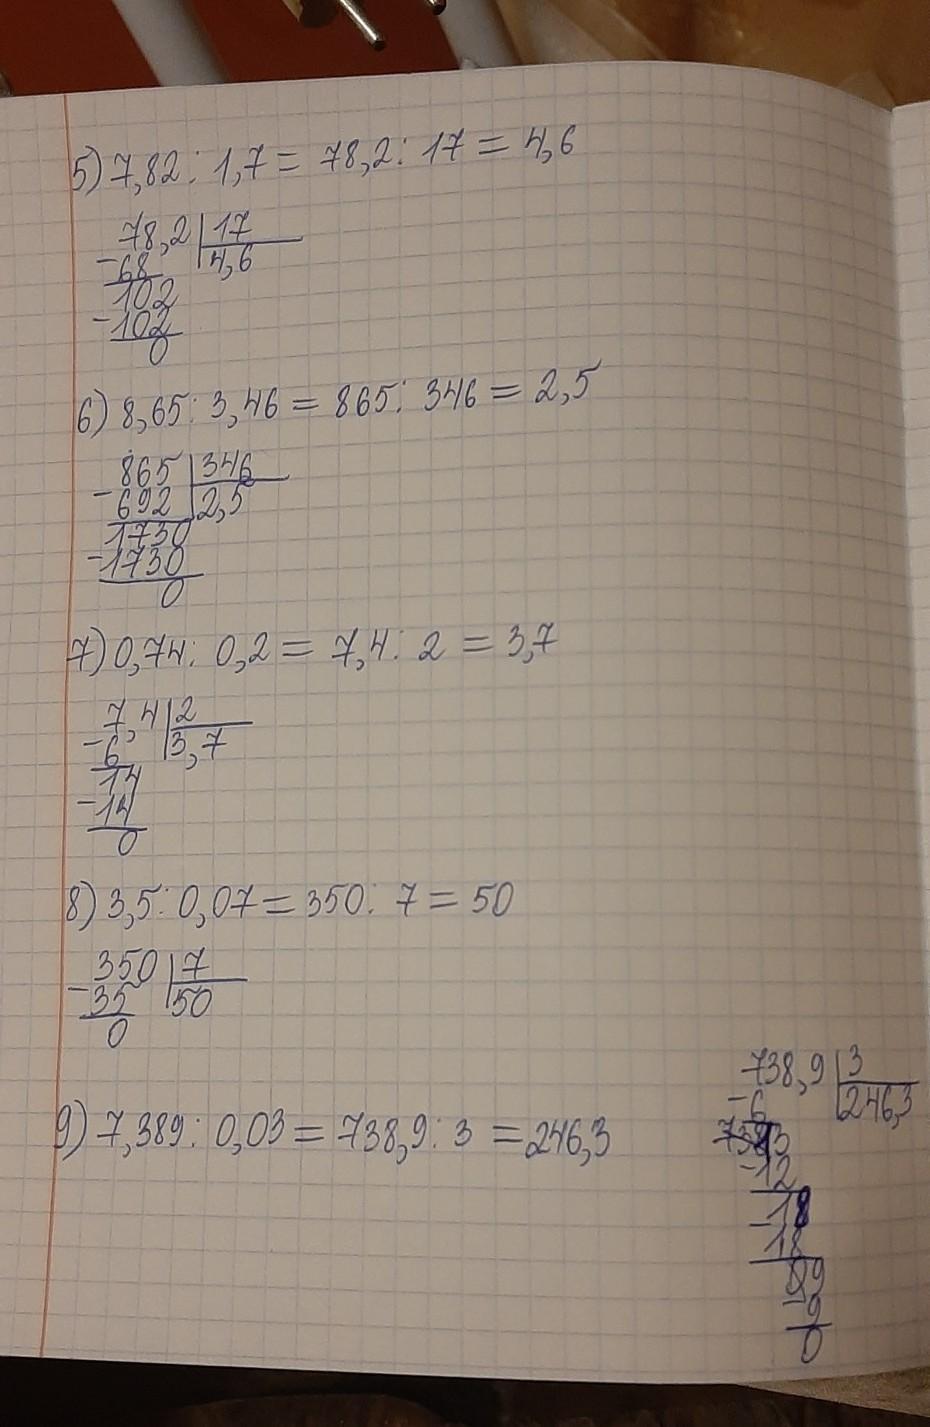 5) 7,82 : 1,7 = 78,2 : 17 = 4,6
78,2 | 17
-68 | 4,6
102
-102
0
6) 8,65 : 3,46 = 865 : 346 = 2,5
865 | 346
-692 | 2,5
1730
-1730
0
7) 0,74 : 0,2 = 7,4 : 2 = 3,7
7,4 | 2
-6 | 3,7
14
-14
0
8) 3,5 : 0,07 = 350 : 7 = 50
350 | 7
-35 | 50
0
9) 7,389 : 0,03 = 738,9 : 3 = 246,3
738,9 | 3
-6 | 246,3
13
-12
-18
18
9
-9
0